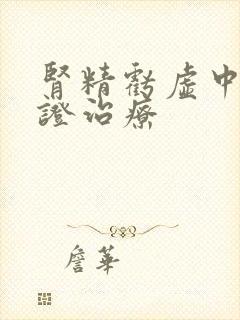 腎精虧虛中
證治療
詹華